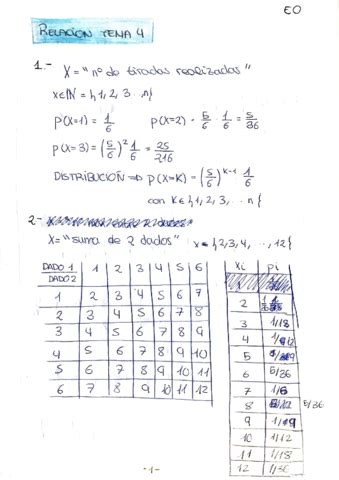 EO
RELACIÓN TEMA 4
1.- X = "nº de tiradas realizadas"
x∈ℕ = {1, 2, 3 ...n}
P(X=1) = 1/6    P(X=2) = 5/6 · 1/6 = 5/36
P(X=3) = (5/6)² 1/6 = 25/216
DISTRIBUCIÓN ⇒ P(X=K) = (5/6)^(K-1) · 1/6
con K∈{1, 2, 3, ... n{
2-
X= "suma de 2 dados"    x∈{2, 3, 4, ..., 12{
DADO 1 | 1 | 2 | 3 | 4 | 5 | 6
DADO 2
1 | 2 | 3 | 4 | 5 | 6 | 7
2 | 3 | 4 | 5 | 6 | 7 | 8
3 | 4 | 5 | 6 | 7 | 8 | 9
4 | 5 | 6 | 7 | 8 | 9 | 10
5 | 6 | 7 | 8 | 9 | 10 | 11
6 | 7 | 8 | 9 | 10 | 11 | 12
xi | pi
2 | 1/36
3 | 1/18
4 | 1/12
5 | 1/9
6 | 5/36
7 | 1/6
8 | 5/36
9 | 1/9
10 | 1/12
11 | 1/18
12 | 1/36
-1-